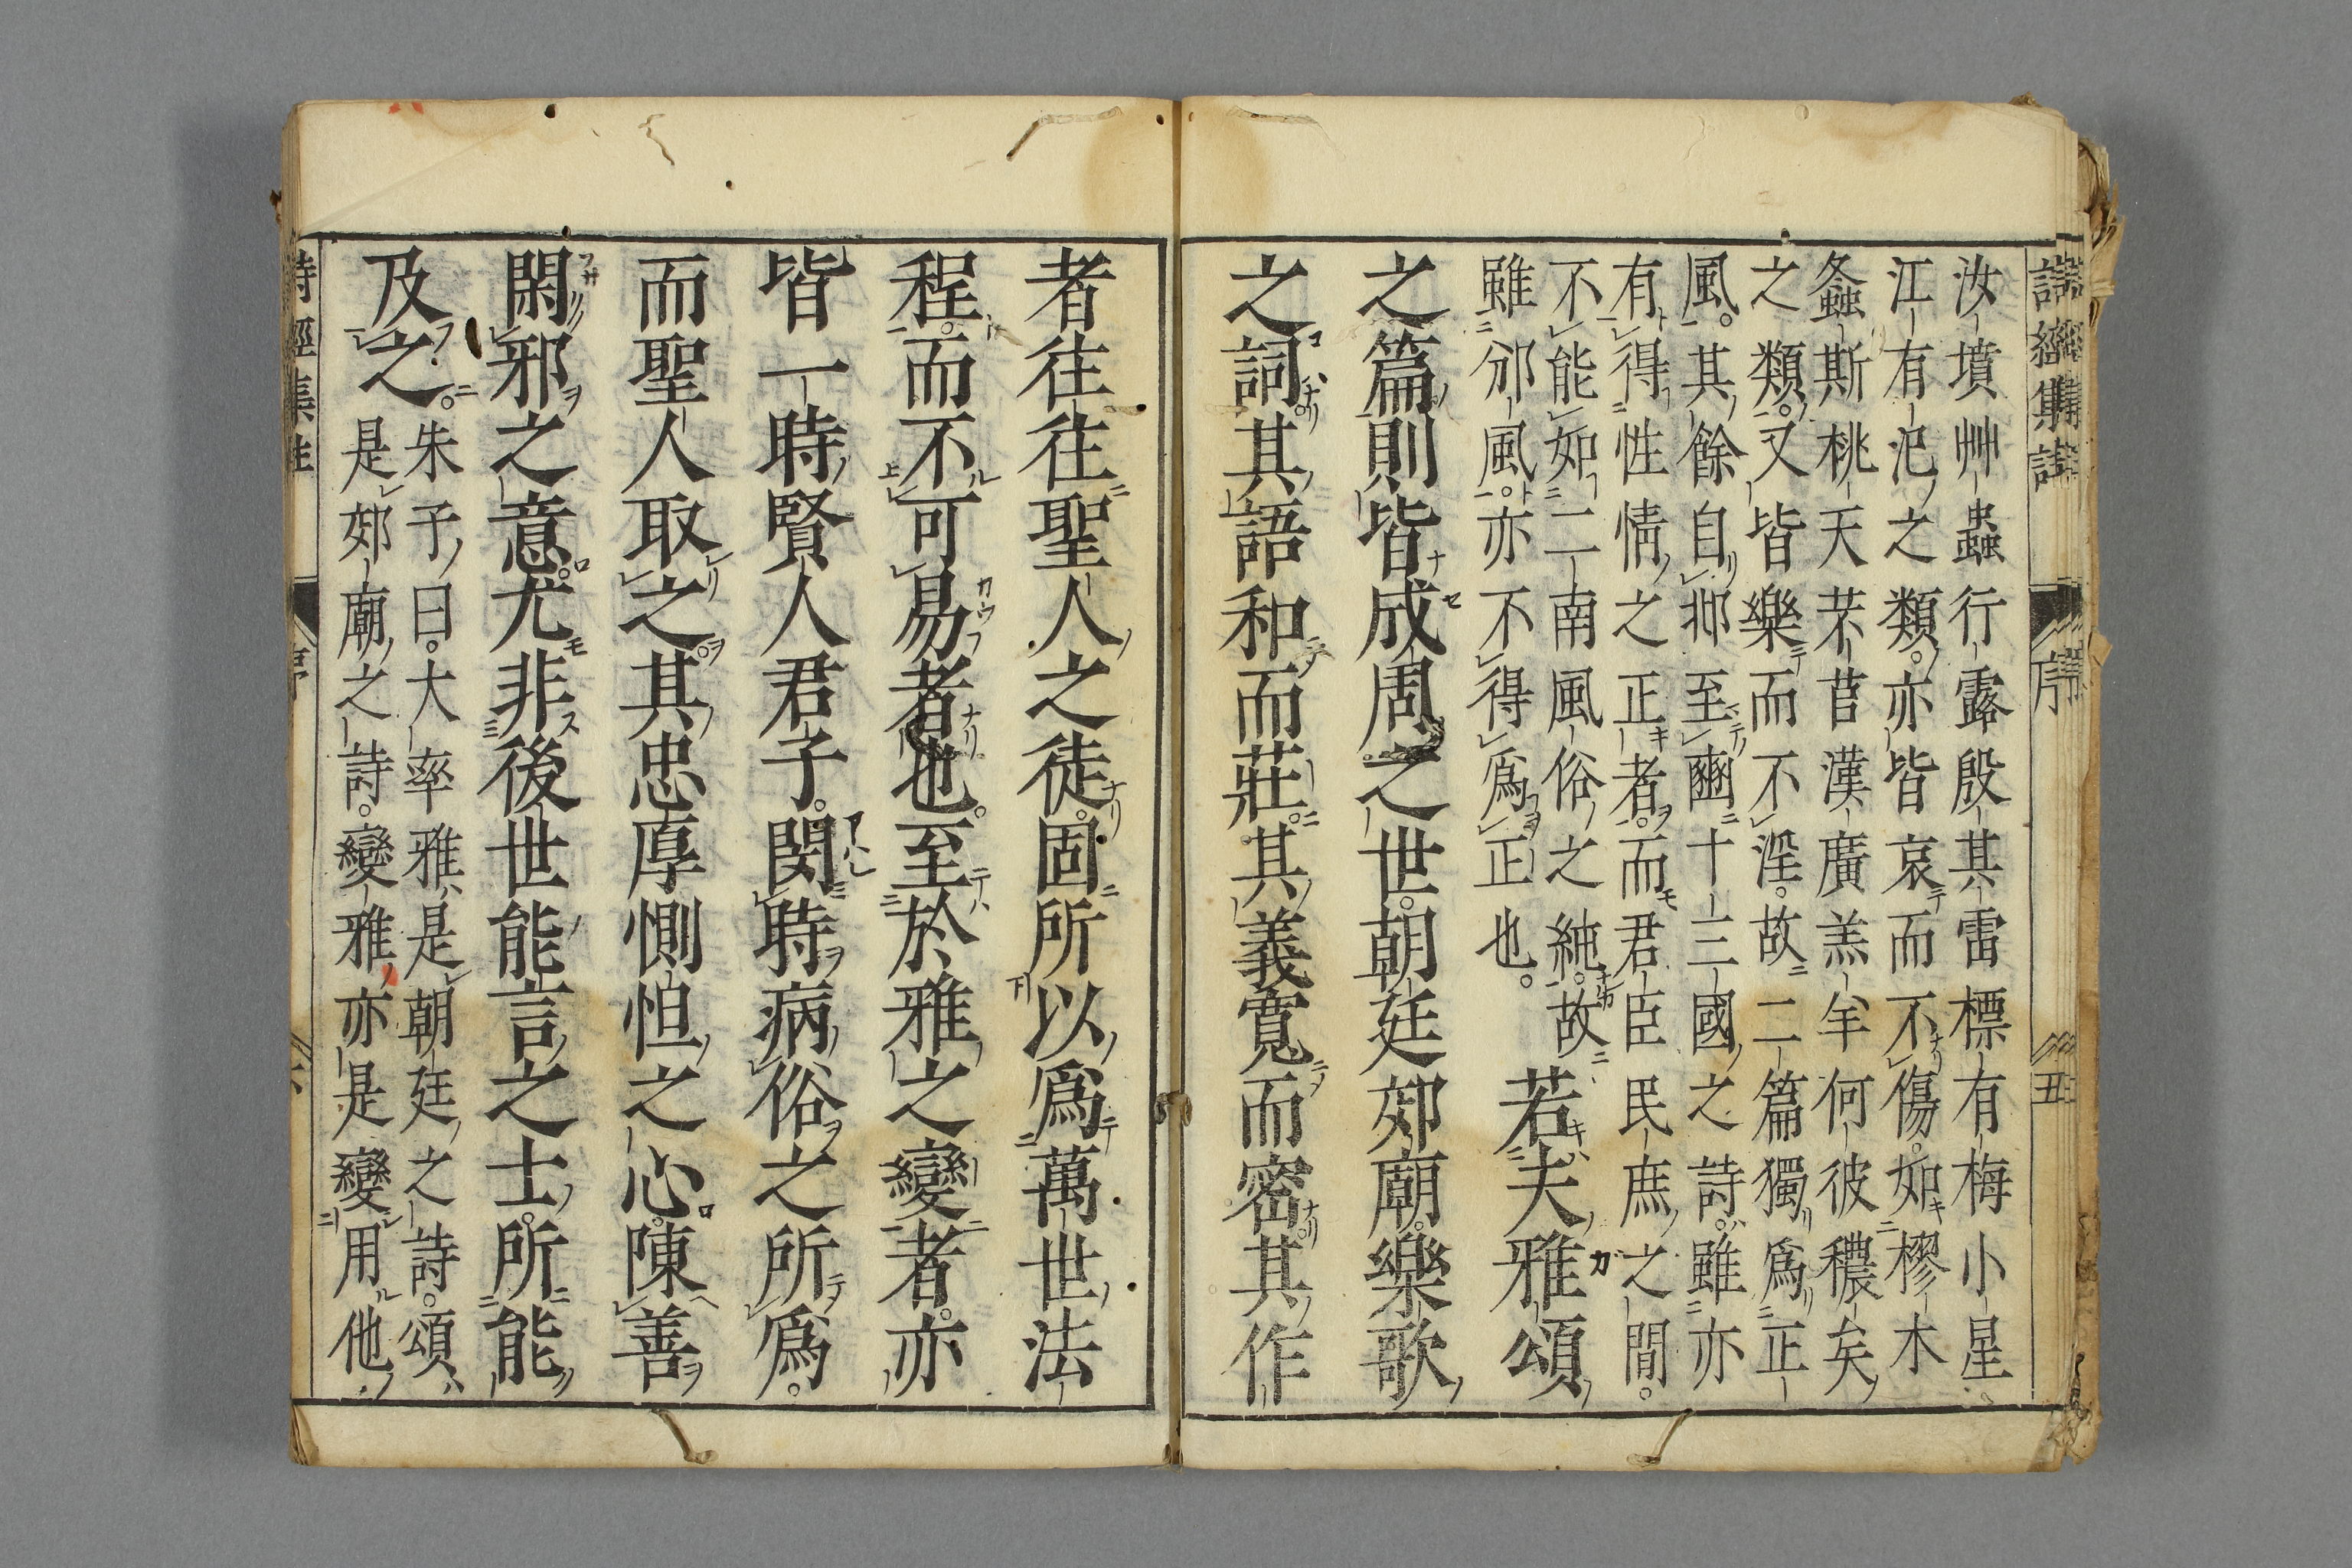 詩經集註 序 五
汝墳艸蟲行露殷其雷標有梅小星
江有汜之類亦皆哀而不傷如樛木
螽斯桃夭芣苢漢廣羔羊何彼穠矣
之類又皆樂而不淫故二篇獨爲正
風其餘自邶至豳十三國之詩雖亦
有得性情之正者而君臣民庶之間
不能如二南風俗之純故
雖邠風亦不得爲正也
若夫雅頌
之篇則皆成周之世朝廷郊廟樂歌
之詞其語和而莊其義寬而密其作
者往往聖人之徒固所以爲萬世法
程而不可易者也至於雅之變者亦
皆一時賢人君子閔時病俗之所爲
而聖人取之其忠厚惻怛之心陳善
閑邪之意尤非後世能言之士所能
及之
朱子曰大率雅是朝廷之詩頌
是郊廟之詩變雅亦是變用他
詩經集註 序